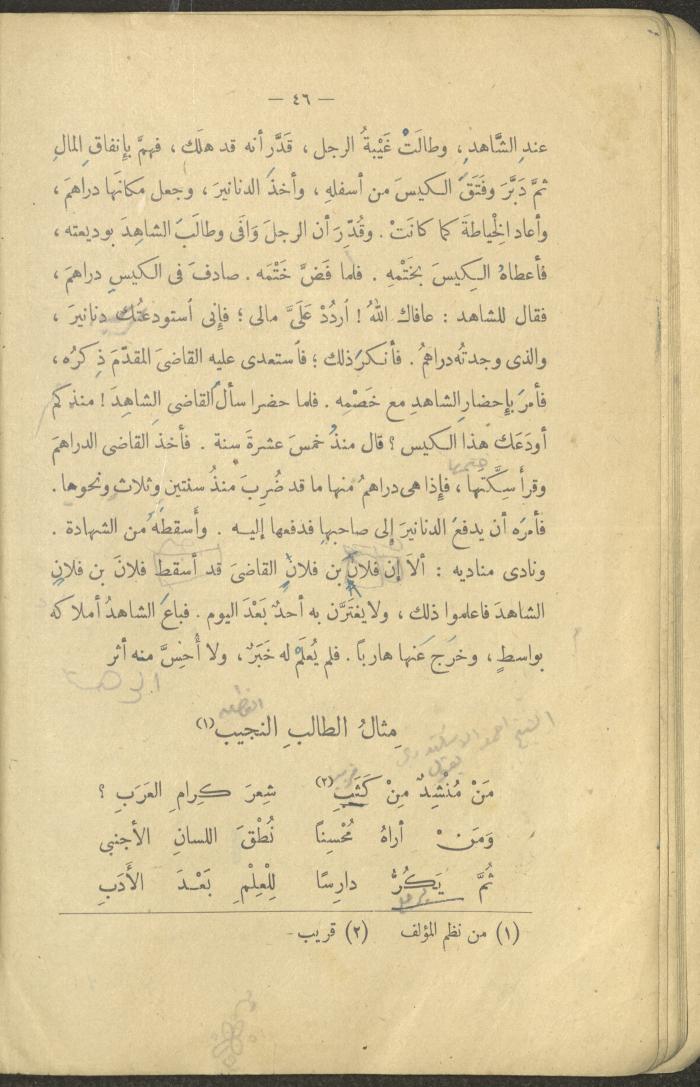 — ٤٦ —
عند الشَّاهد، وطالَتْ غَيْبةُ الرجل، قَدَّر أنه قد هلَك، فهمَّ بإنفاق المال
ثمَّ دَبَّرَ وفَتَقَ الكيسَ من أسفلهِ، وأخذَ الدنانيرَ، وجعل مكانَها دراهمَ،
وأعاد الخِياطةَ كما كانَتْ. وقُدِّرَ أن الرجلَ وَافَى وطالَبَ الشاهِدَ بوديعته،
فأعطاهُ الكِيسَ بخَتْمِهِ. فلما فَضَّ خَتْمَه. صادفَ فى الكيسِ دراهمَ،
فقال للشاهد: عافاك اللهُ! اُردُدْ عَلَىَّ مالى؛ فإنى اُستودعتُك دنانيرَ،
والذى وجدتُه دراهمُ. فأنكرَ ذلك؛ فاُستعدى عليه القاضىَ المقدّمَ ذِكرُه،
فأمرَ بإحضارِ الشاهدِ مع خَصْمِه. فلما حضرا سألَ القاضى الشاهِدَ! منذُ كم
أودَعَك هذا الكيس؟ قال منذُ خمسَ عشرةَ سنة. فأخذَ القاضى الدراهمَ
وقرأَ سِكَّتَها، فإذا هى دراهمُ منها ما قد ضُرِبَ منذُ سنتين وثلاث ونحوها.
فأمرَه أن يدفعَ الدنانيرَ إلى صاحبها فدفعها إليه. وأسقطَهُ من الشهادة.
ونادى مناديه: ألاَ إن فلانَ بن فلانٍ القاضىَ قد أسقط فلانَ بن فلانٍ
الشاهدَ فاعلموا ذلك، ولا يغترَّن به أحدٌ بعْدَ اليوم. فباعَ الشاهدُ أملاكه
بواسطٍ، وخرَج عنها هارباً. فلم يُعلَم له خَبَرٌ، ولا أُحِسَّ منه أثر
مِثالُ الطالبِ النجيب (١)
مَنْ مُنْشِدٌ مِنْ كَثَبِ (٢) شِعرَ كِرامِ العَرَبِ؟
وَمَنْ أراهُ مُحْسِناً نُطْقَ اللسانِ الأجنبى
ثُمَّ يَكُرُّ دارِسًا لِلْعِلْمِ بَعْدَ الأَدَبِ
(١) من نظم المؤلف (٢) قريب